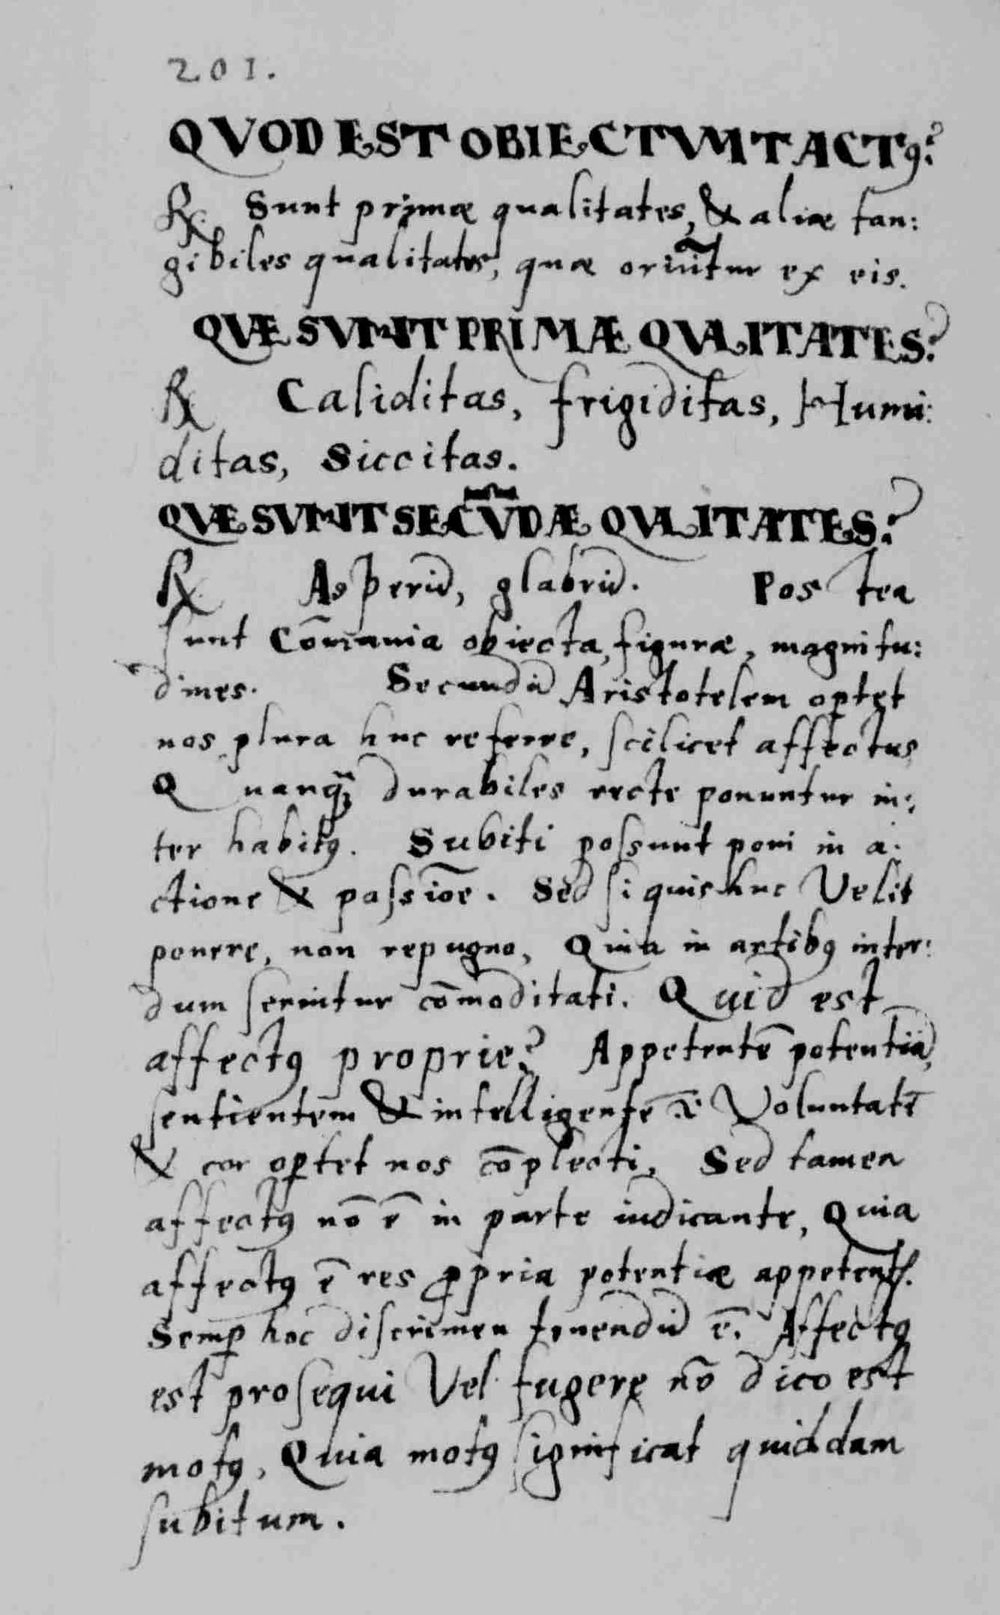 201.
QVOD EST OBIECTVM TACTꝰ?
℞. Sunt primæ qualitates, & aliæ tan:
gibiles qualitates, quæ oriũtur ex eis.
QVÆ SVNT PRIMÆ QVALITATES?
℞ Caliditas, frigiditas, Humi:
ditas, Siccitas.
QVÆ SVNT SECŨDÆ QVALITATES?
℞ Asperũ, glabrũ. Postea
sunt Cõmunia obiecta, figuræ, magnitu:
dines. Secundũ Aristotelem oꝑtet
nos plura huc referre, scilicet affectus
Quanq̃ꝫ durabiles recte ponuntur in:
ter habitꝰ. Subiti possunt poni in a:
ctione & passiõe. Sed si quis huc Velit
ponere, non repugno, Quia in artibꝰ inter:
dum seruitur cõmoditati. Quid est
affectꝰ proprie? Appetentẽ potentiã,
sentientem & intelligentẽ Voluntatẽ
& cor oꝑtet nos cõplecti, Sed tamen
affectꝰ nõ ẽ in parte iudicante, Quia
affectꝰ ẽ res ꝓpria potentiæ appetentꝭ.
Semꝑ hoc discrimen tenendũ ẽ. Affectꝰ
est prosequi Vel fugere nõ dico est
motꝰ, Quia motꝰ significat quiddam
subitum.